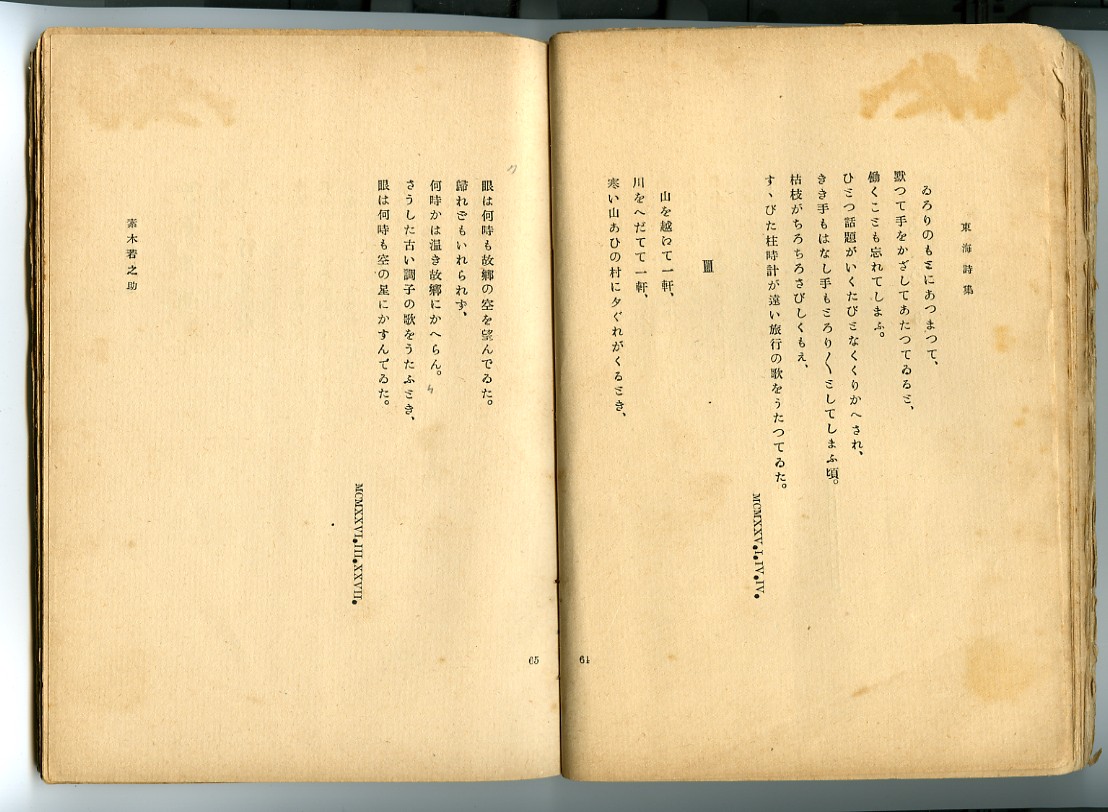 東海詩集
ゐろりのもとにあつまつて、
默つて手をかざしてあたつてゐると、
働くことも忘れてしまふ。
ひとつ話題がいくたびとなくくりかへされ、
きき手もはなし手もとろり〱としてしまふ頃。
枯枝がちろちろさびしくもえ、
すゝびた柱時計が遠い旅行の歌をうたつてゐた。
MCMXXV.I.IV.IV.
Ⅲ
山を越にて一軒、
川をへだてて一軒、
寒い山あひの村に夕ぐれがくるとき、
64
眼は何時も故鄕の空を望んでゐた。
歸れどもいれられず、
何時かは温き故鄕にかへらん。
さうした古い調子の歌をうたふとき、
眼は何時も空の星にかすんでゐた。
MCMXXVI.III.XXVII.
素木若之助
65